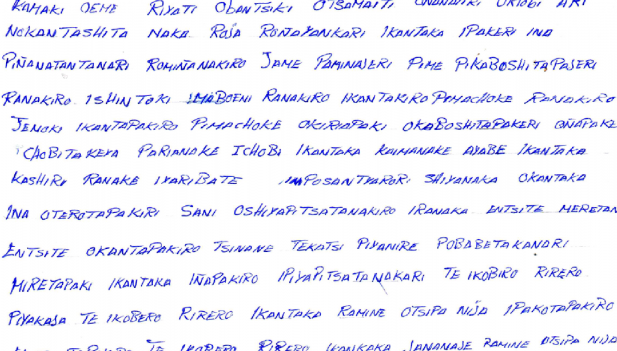 KAMAKI OEME RIYATI OBANTSIKI OTSAMAITI ARI
NOKANTASHITA NAKA ROJA ROÑAYANKARI IKANTAKA IPAKERI INA
PIÑANATANTANARI ROMIÑANAKIRO JAME PAMINAJERI PIME PIKABOSHITAPAJERI
RANAKIRO ISHINTOKI IMABOENI RANAKIRO IKANTAKIRO PIMACHOKE RANAKIRO
JENOKI IKANTAPAKIRO PIMACHOKE OKIRIAPAKI OKABOSHITAPAKERI OÑAPAKE
CHOBITAKEYA PARIANAKE ICHOBI IKANTAKA KAIMANAKE AYABE IKANTAKA
KASHIRI RANAKE IYARIBATE IMPOSANTYARORI SHIYANAKA OKANTAKA
INA OTEROTAPAKIRI SANI OSHIYAPITSATANAKIRO IRANAKA ENTSITE MERETAN
ENTSITE OKANTAPAKIRO TSINANE TEKATSI PIYANIRE POBABETAKANARI
MIRETAPAKI IKANTAKA IÑAPAKIRO IPIYAPITSATANAKARI TE IKOBIRO RIRERO
PIYAKAJA TE IKOBERO RIRERO IKANTAKA RAMINE OTSIPA NIJA IPAKOTAPAKIRO
TE IKOBERO RIRERO IKANKAKA JANANAJE RAMINE OTSIPA NIJA